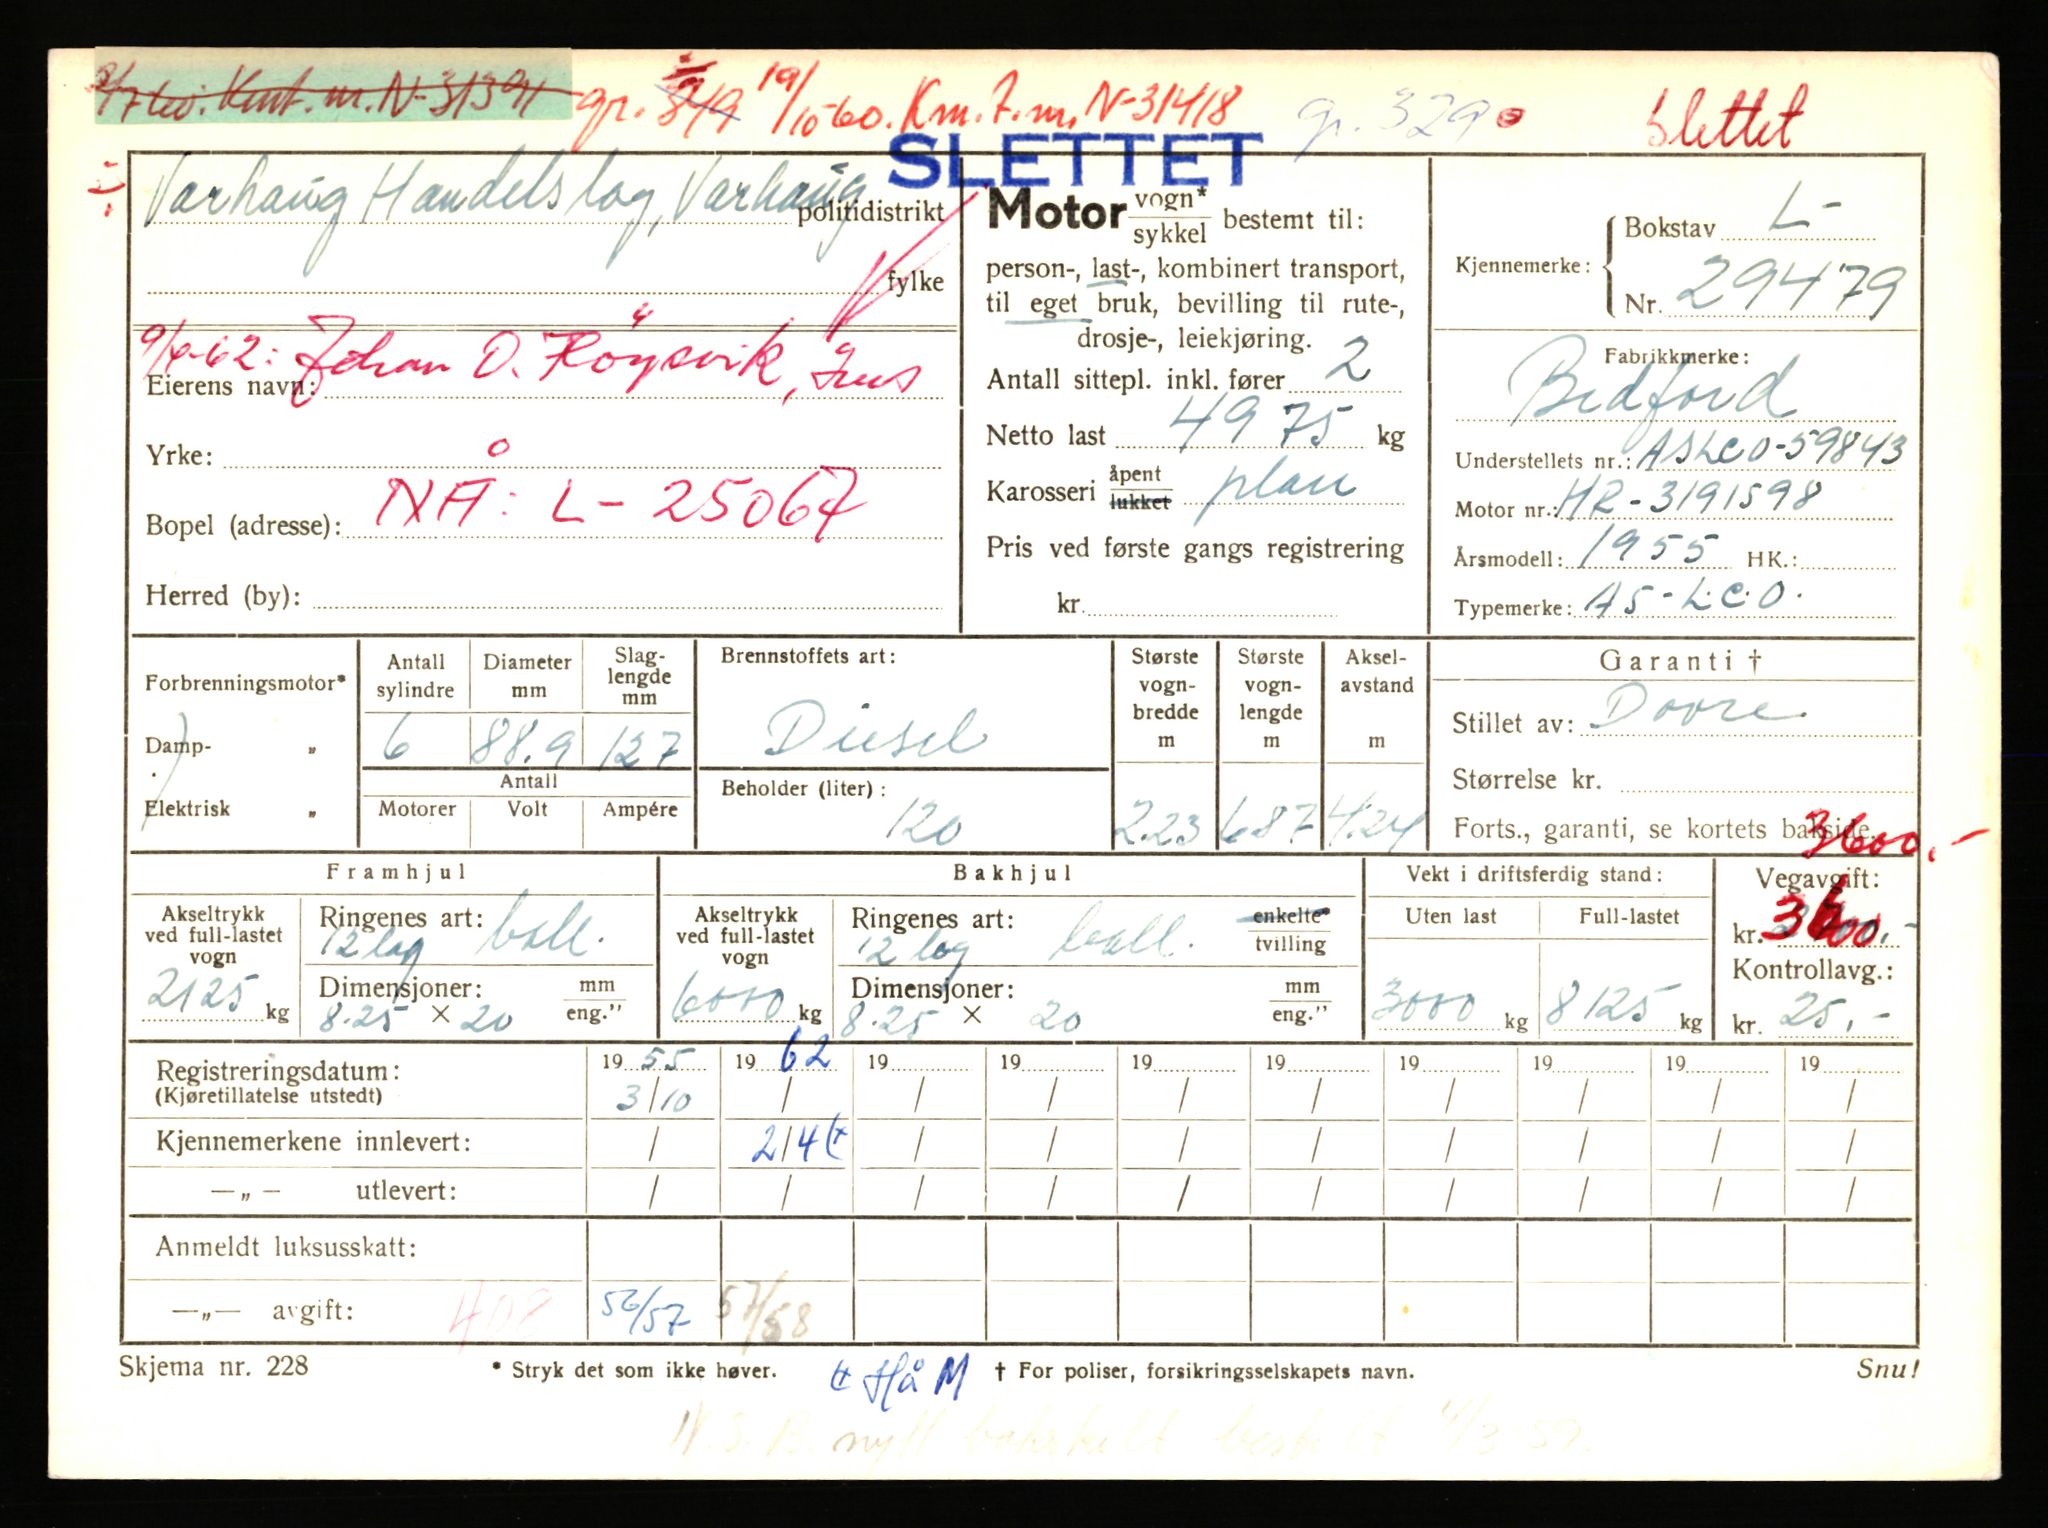 9/7 60. Kmt. m. N-31391 gr. 19/10-60. Km. f. m. N-31418 gr. 329 Slettet
SLETTET
Varhaug Handelslag, Varhaug politidistrikt
fylke
9/4-62: Johan O. Høysvik,
Eierens navn:
Yrke:
NÅ: L-25067
Bopel (adresse):
Herred (by):
Motor vogn* sykkel bestemt til:
person-, last-, kombinert transport,
til eget bruk, bevilling til rute-,
drosje-, leiekjøring.
Antall sittepl. inkl. fører 2
Netto last 4975 kg
Karosseri åpent lukket plan
Pris ved første gangs registrering
kr.
Kjennemerke: Bokstav L-
Nr. 29479
Fabrikkmerke:
Bedford
Understellets nr.: ASLCO-59843
Motor nr.: HR-3191598
Årsmodell: 1955 HK.:
Typemerke: AS-L.C.O.
Forbrenningsmotor*
Damp- „
Elektrisk „
Antall sylindre Diameter mm Slag-lengde mm
6 88.9 127
Antall
Motorer Volt Ampére
Brennstoffets art:
Diesel
Beholder (liter):
120
Største vogn-bredde m Største vogn-lengde m Aksel-avstand m
2.23 687 4.24
Garanti †
Stillet av: Dovre
Størrelse kr.
Forts., garanti, se kortets bakside.
3600,-
Framhjul
Akseltrykk ved full-lastet vogn
2125 kg
Ringenes art:
12 lag ball.
Dimensjoner: mm eng."
8.25 × 20
Bakhjul
Akseltrykk ved full-lastet vogn
6000 kg
Ringenes art: enkelte* tvilling
12 lag ball.
Dimensjoner: mm eng."
8.25 × 20
Vekt i driftsferdig stand:
Uten last Full-lastet
3000 kg 8125 kg
Vegavgift:
kr. 3600,-
Kontrollavg.:
kr. 25,-
Registreringsdatum: 1955 1962 19 19 19 19 19 19 19 19
(Kjøretillatelse utstedt) 3/10 / / / / / / / / /
Kjennemerkene innlevert: / 2/4 / / / / / / / /
—„— utlevert: / / / / / / / / / /
Anmeldt luksusskatt:
—„— avgift: 408 56/57 57/58
Skjema nr. 228 * Stryk det som ikke høver. Hå M † For poliser, forsikringsselskapets navn. Snu!
N.S.B. nytt bakskilt bestilt 4/3-59.